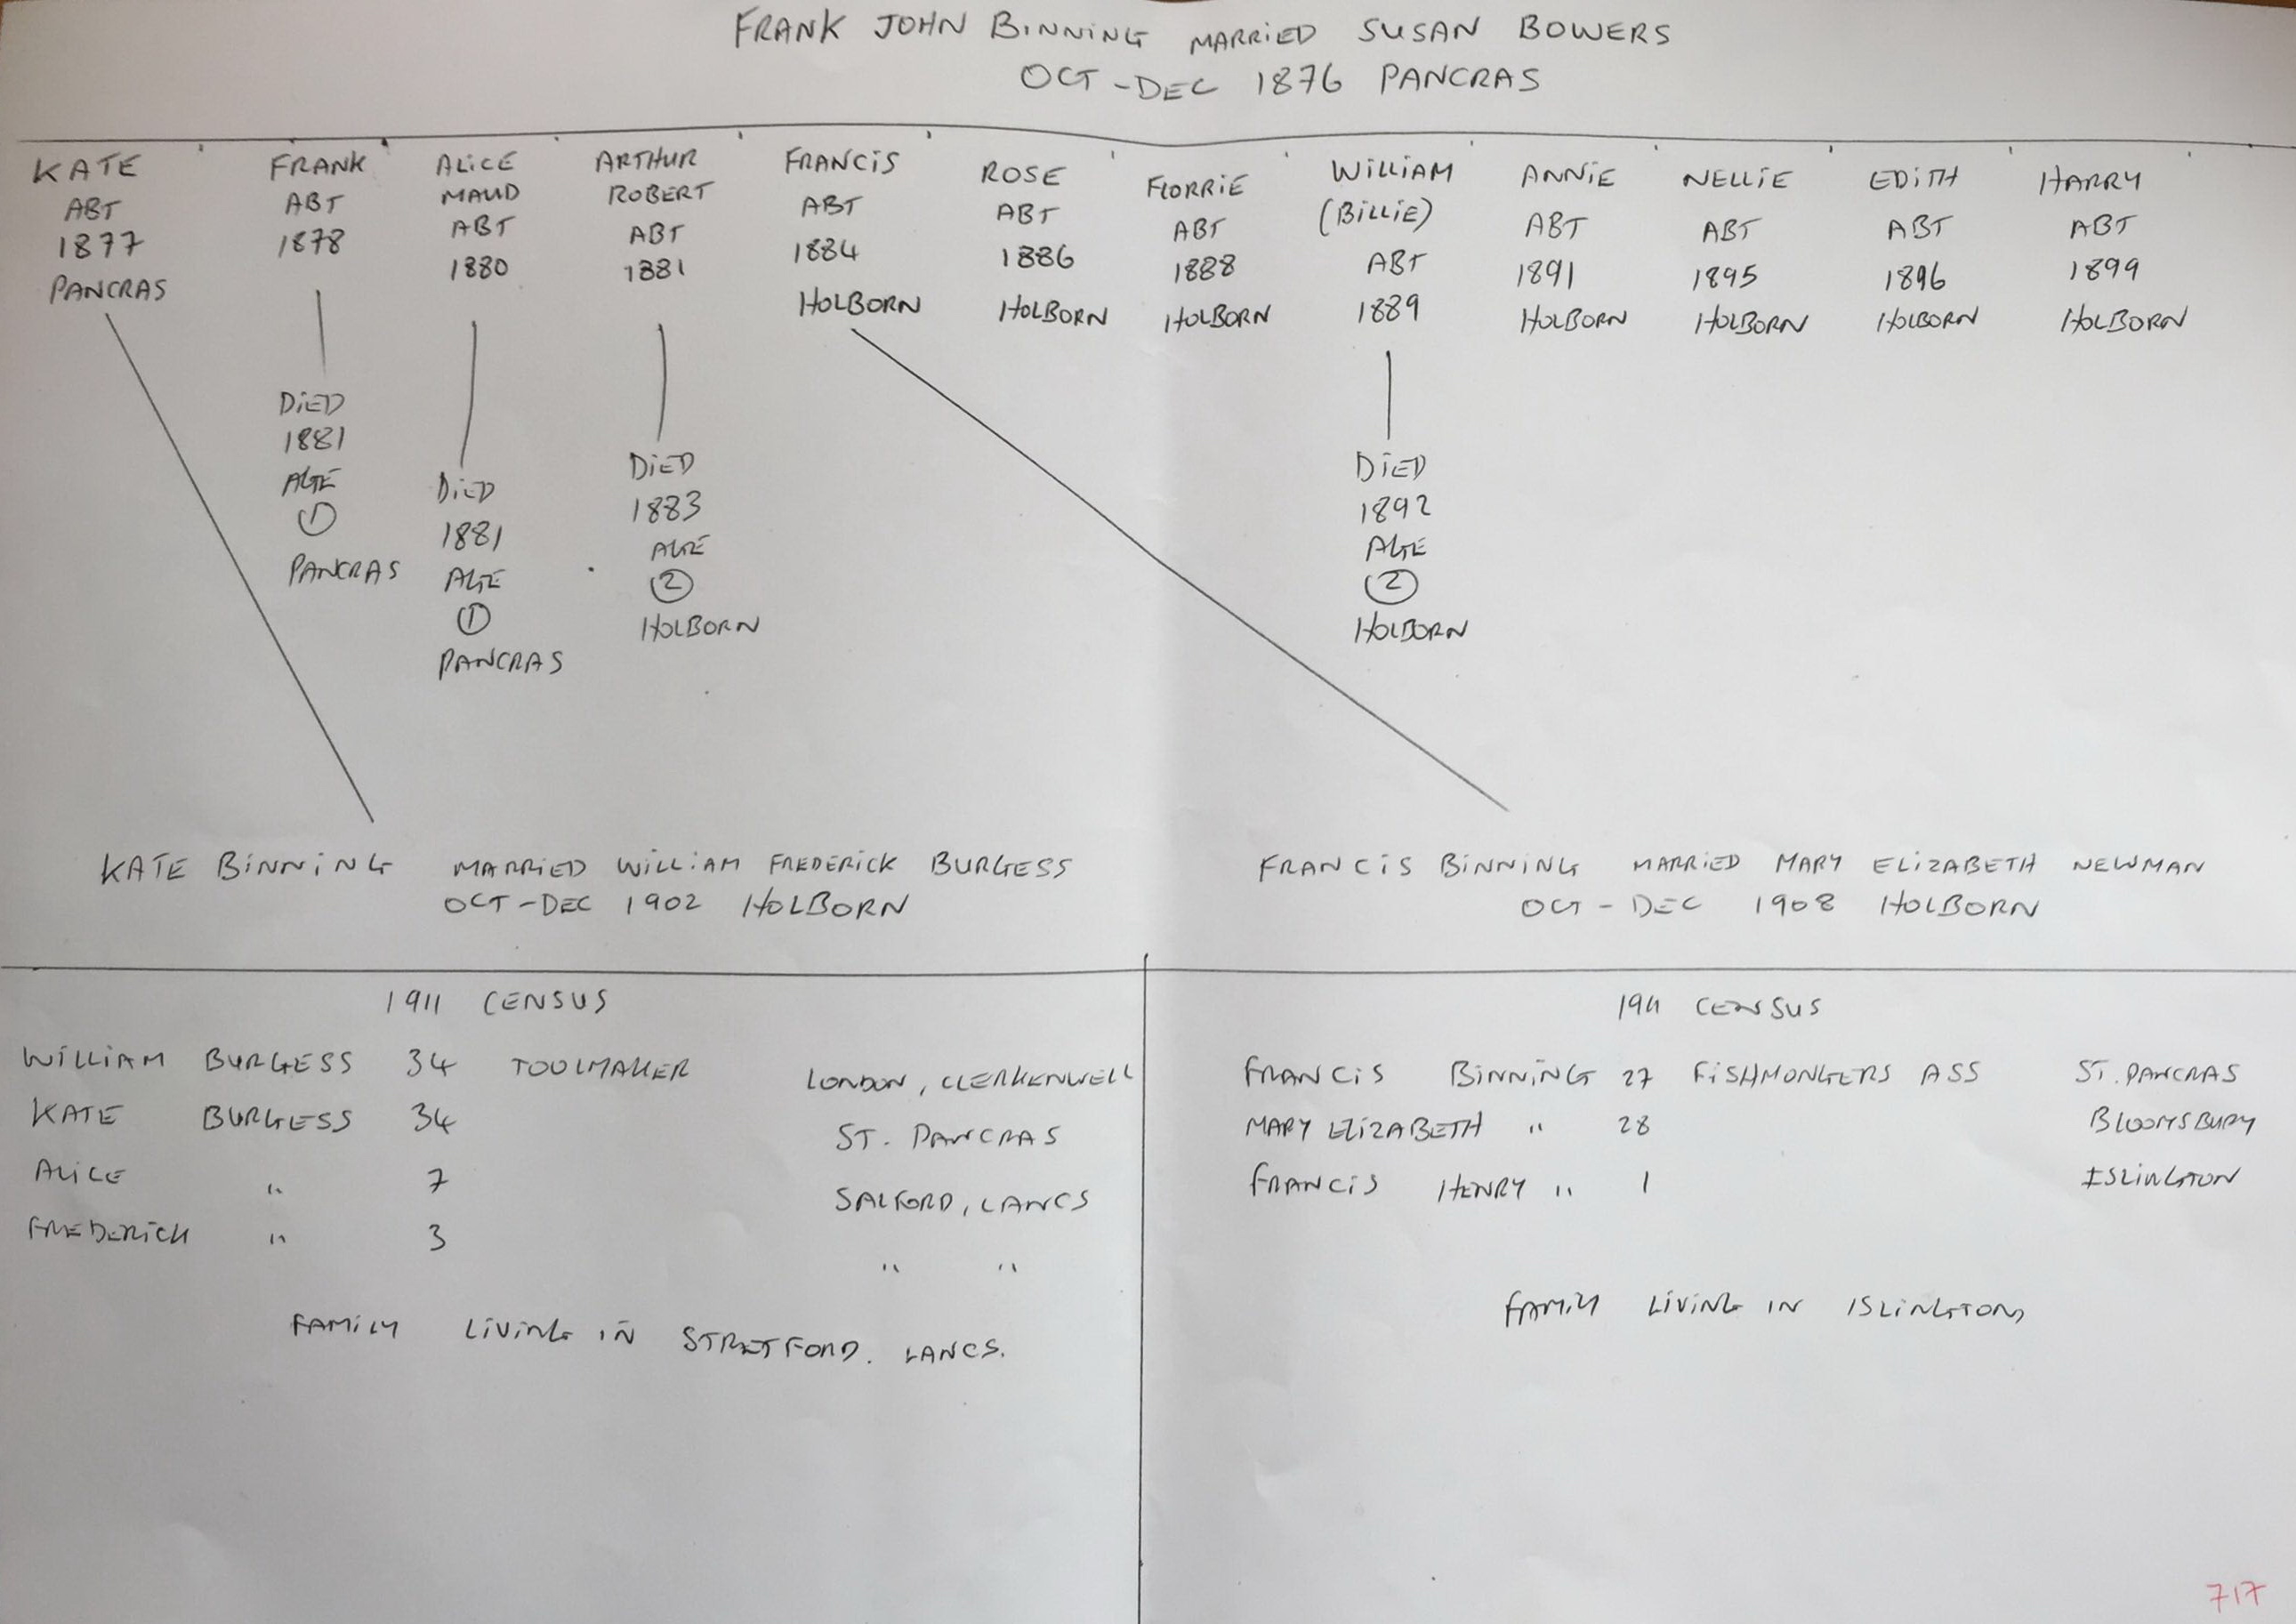 FRANK JOHN BINNING MARRIED SUSAN BOWERS
OCT - DEC 1876 PANCRAS
KATE
ABT
1877
PANCRAS
FRANK
ABT
1878
DIED
1881
AGE
1
PANCRAS
ALICE
MAUD
ABT
1880
DIED
1881
AGE
1
PANCRAS
ARTHUR
ROBERT
ABT
1881
DIED
1883
AGE
2
HOLBORN
FRANCIS
ABT
1884
HOLBORN
ROSE
ABT
1886
HOLBORN
FLORRIE
ABT
1888
HOLBORN
WILLIAM
(BILLIE)
ABT
1889
DIED
1892
AGE
2
HOLBORN
ANNIE
ABT
1891
HOLBORN
NELLIE
ABT
1895
HOLBORN
EDITH
ABT
1896
HOLBORN
HARRY
ABT
1899
HOLBORN
KATE BINNING MARRIED WILLIAM FREDERICK BURGESS
OCT - DEC 1902 HOLBORN
FRANCIS BINNING MARRIED MARY ELIZABETH NEWMAN
OCT - DEC 1908 HOLBORN
1911 CENSUS
WILLIAM BURGESS 34 TOOLMAKER LONDON, CLERKENWELL
KATE BURGESS 34 ST. PANCRAS
ALICE " 7 SALFORD, LANCS
FREDERICK " 3 " "
FAMILY LIVING IN STRETFORD. LANCS.
1911 CENSUS
FRANCIS BINNING 27 FISHMONGERS ASS ST. PANCRAS
MARY ELIZABETH " 28 BLOOMSBURY
FRANCIS HENRY " 1 ISLINGTON
FAMILY LIVING IN ISLINGTON
717